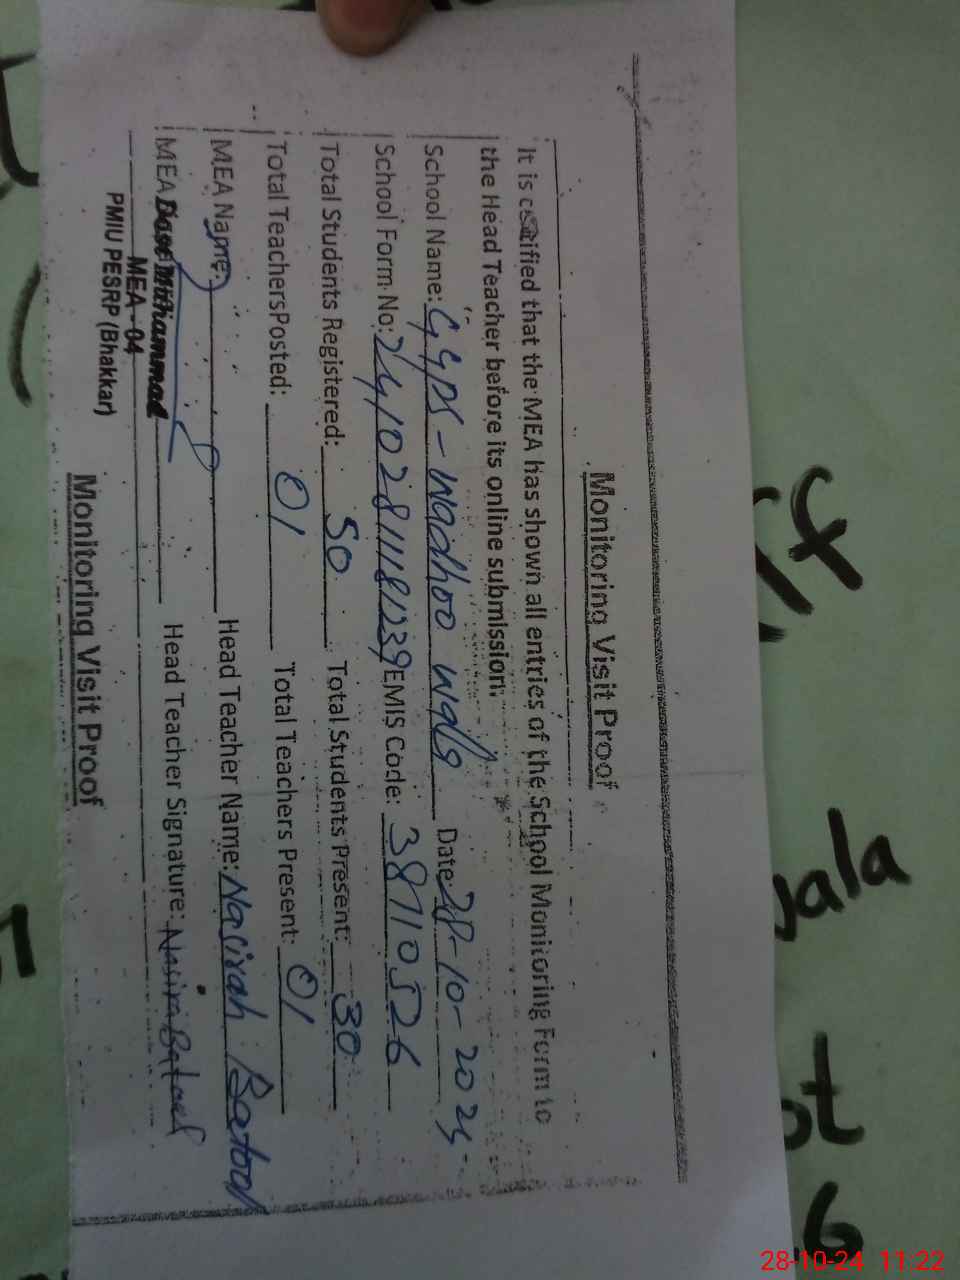 Monitoring Visit Proof
It is certified that the MEA has shown all entries of the School Monitoring Form to
the Head Teacher before its online submission.
School Name: GGPS - Wadhoo wala Date: 28-10-2024
School Form No: EMIS Code: 38110526
Total Students Registered: 50 Total Students Present: 30
Total Teachers Posted: 01 Total Teachers Present: 01
MEA Name: Head Teacher Name: Nasirah Batool
MEA Dost Muhammad Head Teacher Signature: Nasira Batool
MEA - 04
PMIU PESRP (Bhakkar)
Monitoring Visit Proof
28-10-24 11:22